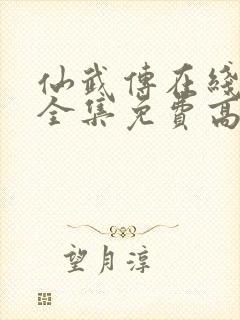 仙武傳在綫
全集免費高
望月淳